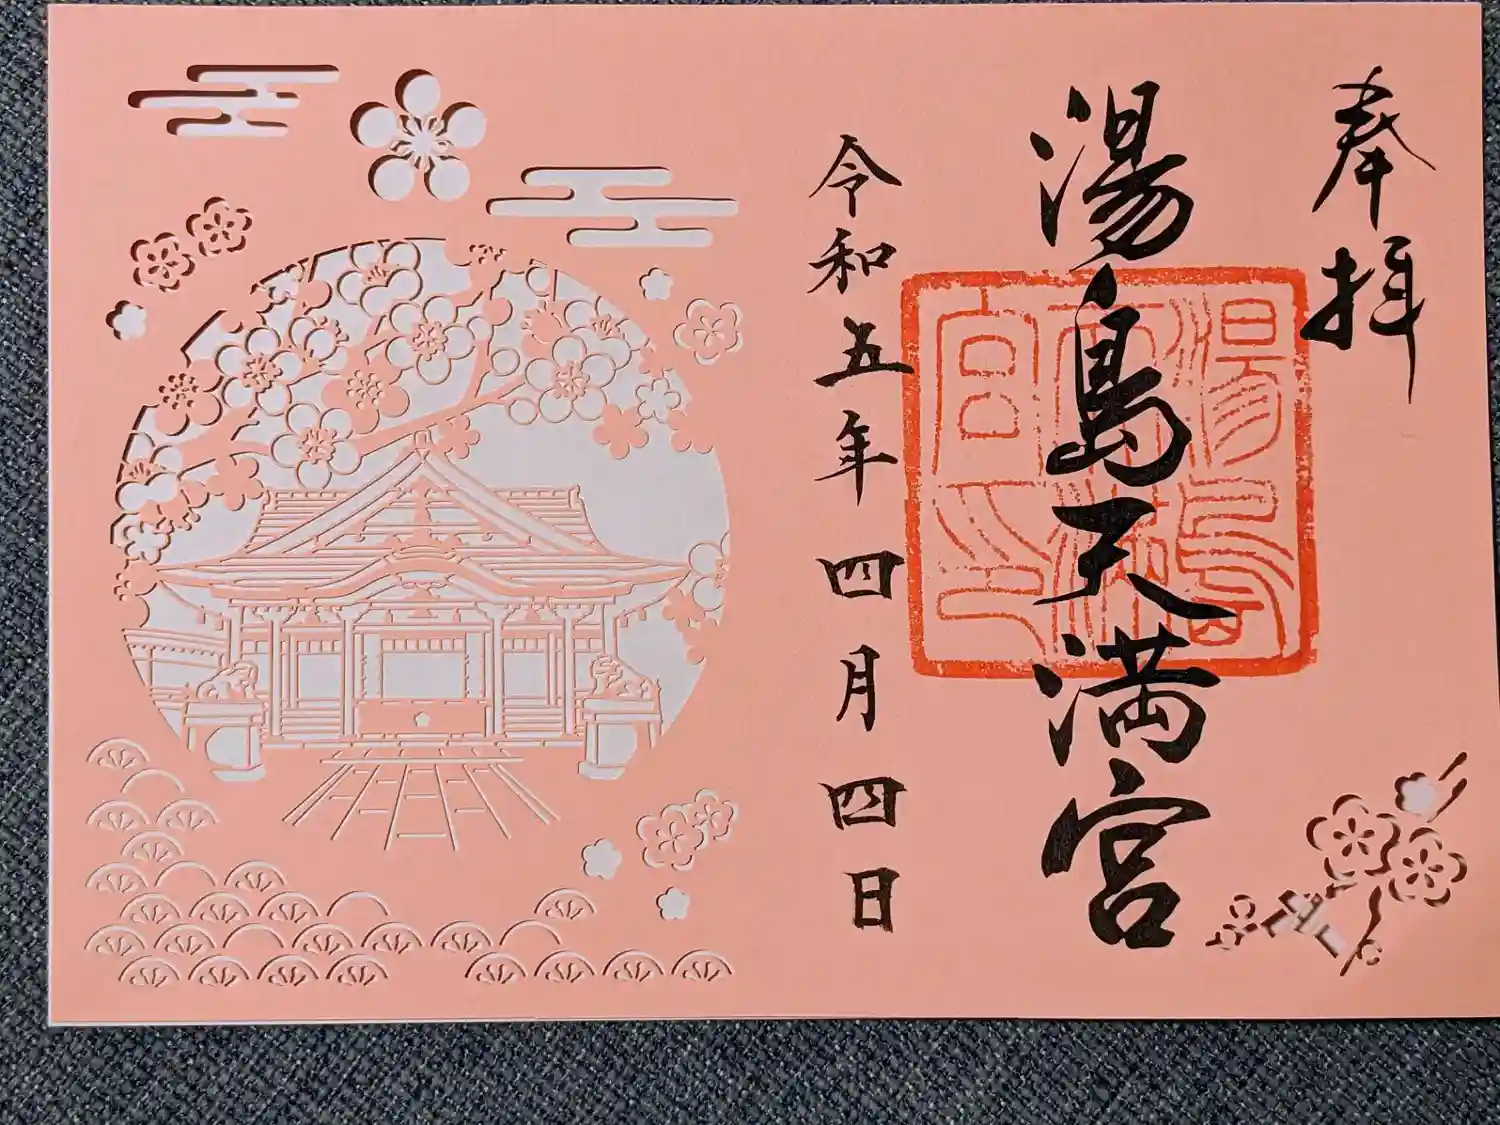 奉拝
湯島天満宮
湯島天満宮印
令和五年四月四日